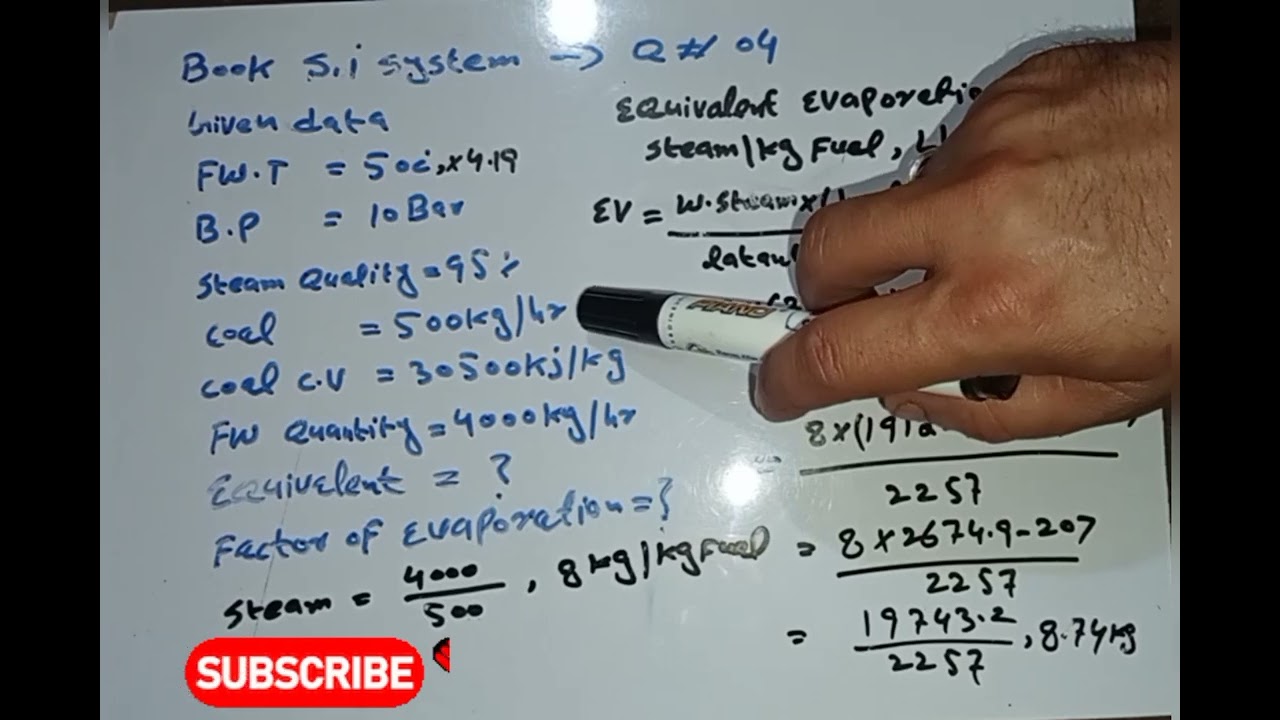 Book S.i system → Q # 04
Given data
FW.T = 50c, ×4.19
B.P = 10 Bar
Steam Quality = 95%
coal = 500kg/hr
coal C.V = 30500kj/kg
FW Quantity = 4000kg/hr
Equivelent = ?
Factor of Evaporation = ?
Steam = 4000/500, 8kg/kg Fuel
SUBSCRIBE
Equivalent
steam/kg Fuel,
EV = W.Steam×
8×(1912
2257
= 8×2674.9-207
2257
= 19743.2
2257 , 8.74kg